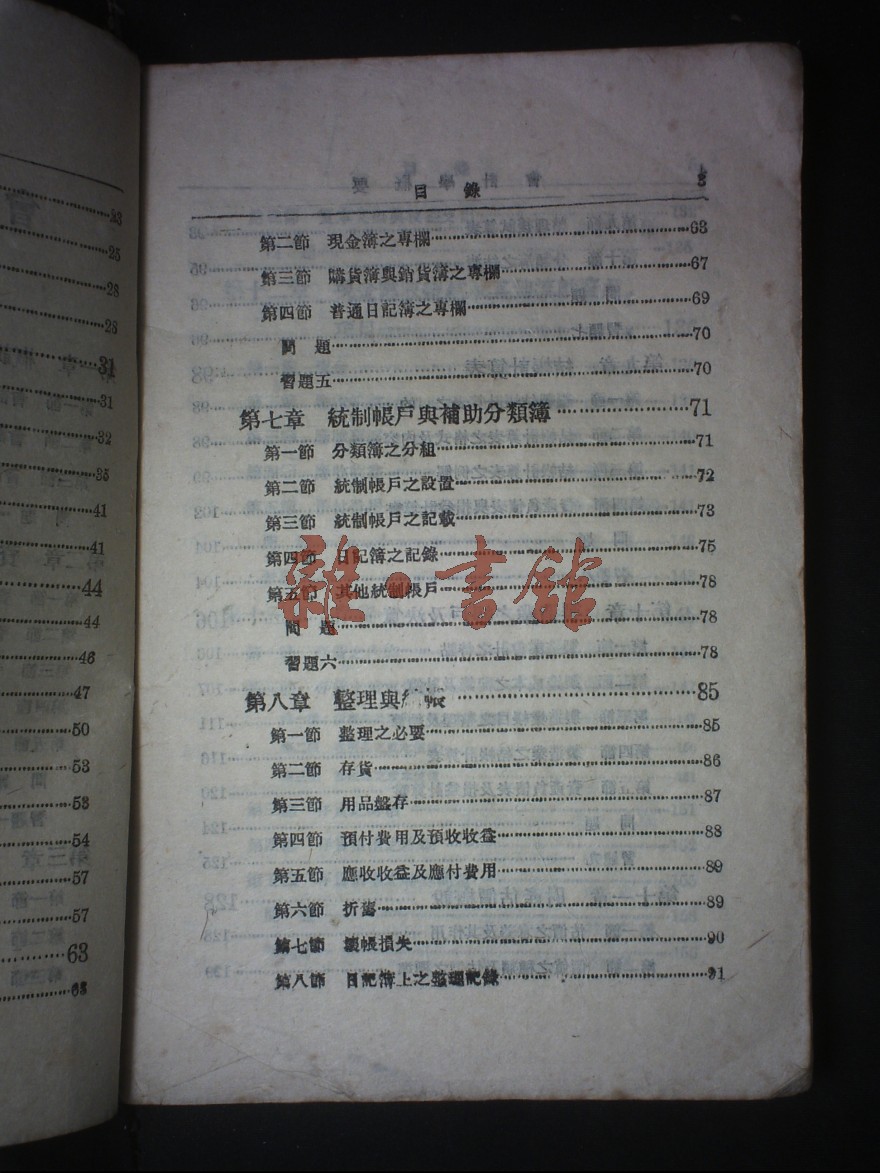 23
25
28
28
31
31
32
35
41
41
44
44
46
47
50
53
53
54
57
57
63
63
目錄 3
第二節 現金簿之專欄 63
第三節 購貨簿與銷貨簿之專欄 67
第四節 普通日記簿之專欄 69
問題 70
習題五 70
第七章 統制帳戶與補助分類簿 71
第一節 分類簿之分組 71
第二節 統制帳戶之設置 72
第三節 統制帳戶之記載 73
第四節 日記簿之記錄 75
第五節 其他統制帳戶 78
問題 78
習題六 78
第八章 整理與結帳 85
第一節 整理之必要 85
第二節 存貨 86
第三節 用品盤存 87
第四節 預付費用及預收收益 88
第五節 應收收益及應付費用 89
第六節 折舊 89
第七節 壞帳損失 90
第八節 日記簿上之整理記錄 91
雜·書館